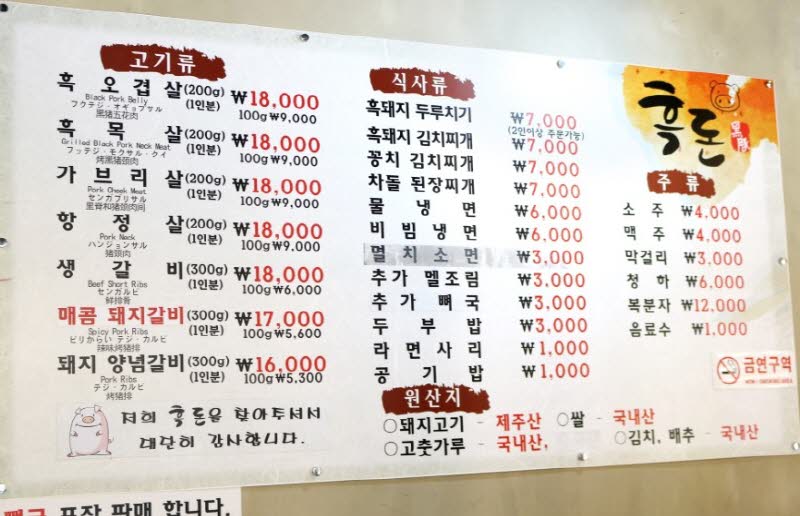 고기류
흑 오 겹 살 (200g) (1인분) ₩18,000
Black Pork Belly
フクテジ・オギョプサル
黑猪五花肉
100g ₩9,000
흑 목 살 (200g) (1인분) ₩18,000
Grilled Black Pork Neck Meat
フッテジ・モクサル・クイ
烤黑猪颈肉
100g ₩9,000
가 브 리 살 (200g) (1인분) ₩18,000
Pork Cheek Meat
センカブリサル
里脊和猪颈肉间
100g ₩9,000
항 정 살 (200g) (1인분) ₩18,000
Pork Neck
ハンジョンサル
猪颈肉
100g ₩9,000
생 갈 비 (300g) (1인분) ₩18,000
Beef Short Ribs
センカルビ
鲜排骨
100g ₩6,000
매콤 돼지갈비 (300g) (1인분) ₩17,000
Spicy Pork Ribs
ピリからい テジ・カルビ
辣味烤猪排
100g ₩5,600
돼지 양념갈비 (300g) (1인분) ₩16,000
Pork Ribs
テジ・カルビ
烤猪排
100g ₩5,300
저희 흑돈을 찾아주셔서
대단히 감사합니다.
식사류
흑돼지 두루치기 ₩7,000
(2인이상 주문가능)
흑돼지 김치찌개 ₩7,000
꽁치 김치찌개 ₩7,000
차돌 된장찌개 ₩7,000
물 냉 면 ₩6,000
비 빔 냉 면 ₩6,000
멸 치 소 면 ₩3,000
추가 멜조림 ₩3,000
추 가 뼈 국 ₩3,000
두 부 밥 ₩3,000
라 면 사 리 ₩1,000
공 기 밥 ₩1,000
원산지
○돼지고기 - 제주산 ○쌀 - 국내산
○고춧가루 - 국내산, ○김치, 배추 - 국내산
흑돈
주 류
소 주 ₩4,000
맥 주 ₩4,000
막걸리 ₩3,000
청 하 ₩6,000
복분자 ₩12,000
음료수 ₩1,000
금연구역
NON-SMOKING AREA
포장 판매 합니다.